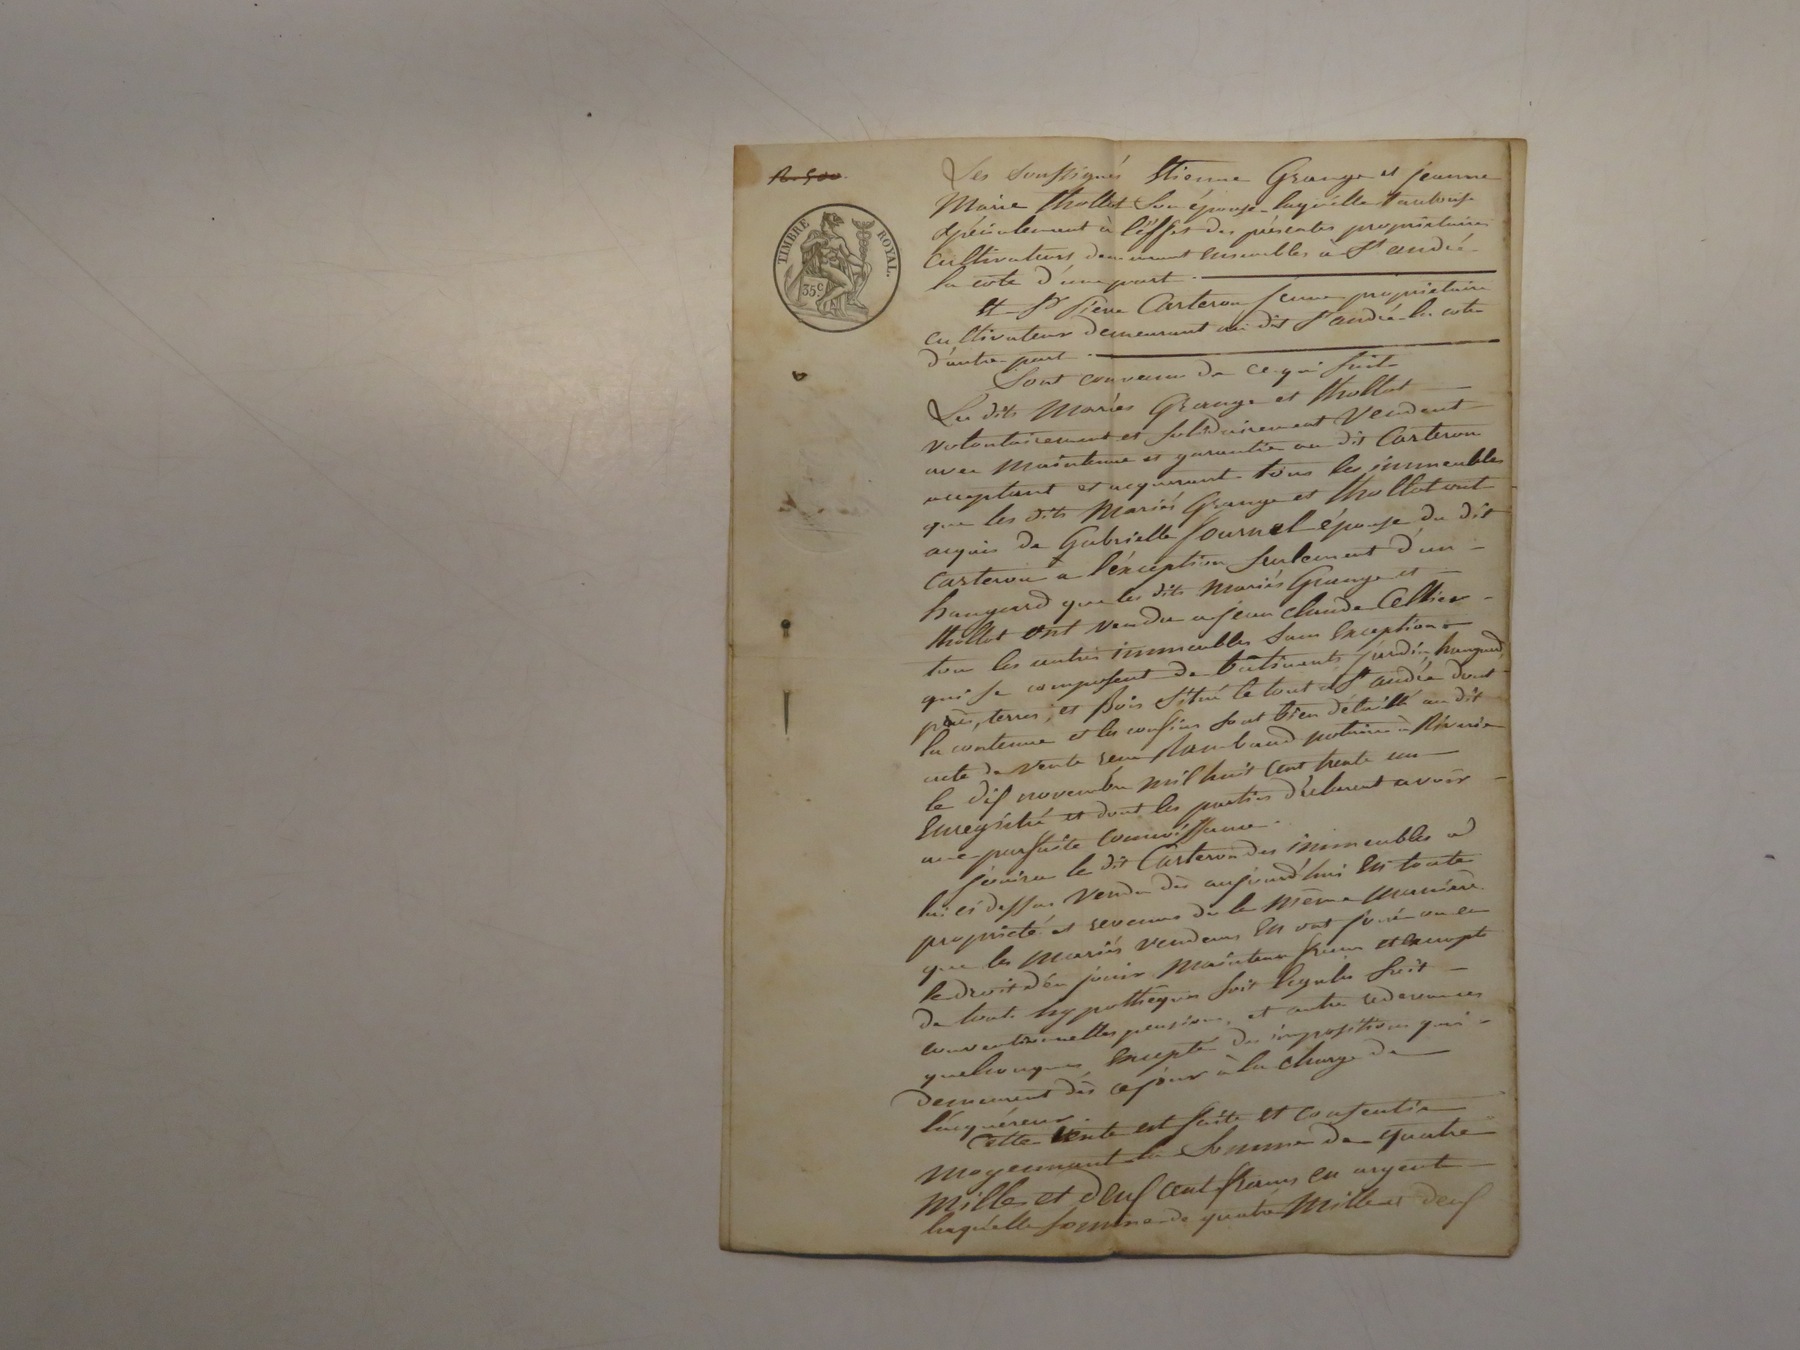 TIMBRE ROYAL.
35c
Les soussignés Etienne Grange et jeanne
Marie thollot son épouse laquelle l'autorise
spécialement à l'éffet des présentes propriétaires
Cultivateurs demeurant ensembles à St andré
la cote d'une part
Et Sr Piere Carteron jeune propriétaire
cultivateur demeurant au dit St andré la cote
d'autre part
Sont convenus de ce qui suit
Les dits Mariés Grange et thollot
volontairement et solidairement Vendent
avec Maintenue et garantie au dit Carteron
acceptant et acquerant tous les immeubles
que les dits Mariés Grange et thollot ont
acquis de Gabrielle fournel épouse du dit
Carteron a l'éxception seulement d'un
hangard que les dits Mariés Grange et
thollot ont vendu a jean claude Cellier
tou les autres immeubles sans Exception
qui se composent de batiments jardin hangard,
prés, terres, et Bois situé le tout a St andré dont
la contenue et les confins sont bien détaillé au dit
acte de Vente reçu notaire à Riverie
le dix novembre mil huit cent trente un
Enregistré et dont les parties déclarent avoir
une parfaite connoissance.
Jouira le dit Carteron des immeubles a
lui ci dessus Vendu dès aujourd'hui En toute
propriété et revenus de la Même Manière
que les Mariés vendeurs En ont joui ou eu
le droit d'en jouir Maintenu francs et Exempts
de toute hypothèques soit légales soit
conventionnelles pensions, et autre redevances
quelconques, Excepté des impositions qui
demeurent dès ce jour à la charge de
l'acquéreur.
Cette Vente est faite et consentie
Moyennant la Somme de quatre
Mille et deux cent francs en argent
laquelle somme de quatre Mille et deux